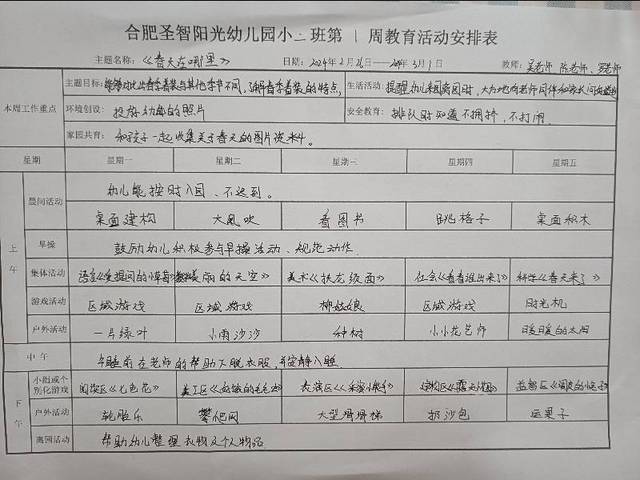 合肥圣智阳光幼儿园小二班第1周教育活动安排表
主题名称：《春天在哪里》 日期：2024年2月26日——2024年3月1日 教师：吴老师 陈老师、罗老师
本周工作重点
主题目标：能够对比出春季着装与其他季节不同，了解春季着装的特点。 生活活动：提醒幼儿来园离园时，大方地向老师同伴和家长问好
环境创设：投放动感的照片 安全教育：排队时知道不拥挤，不打闹
家园共育：和孩子一起收集关于春天的图片资料。
星期 星期一 星期二 星期三 星期四 星期五
上午
晨间活动 幼儿能按时入园、不迟到。
桌面建构 大风吹 看图书 跳格子 桌面积木
早操 鼓励幼儿积极参与早操活动、规范动作
集体活动 语言 美丽的天空》 美术《 社会《春春谁出来了》 科学《春天来了》
游戏活动 区域游戏 区域游戏 柳姑娘 区域游戏 时光机
户外活动 一片绿叶 小雨沙沙 种树 小小花艺师 暖暖的太阳
中午 午睡前在老师的帮助下脱衣服，可安静入睡
下午
小组或个别化游戏 阅读区《七色花》 美工区 表演区 建构区 益智区
户外活动 轮胎乐 攀爬网 大型滑滑梯 扔沙包 运果子
离园活动 帮助幼儿整理衣物及个人物品